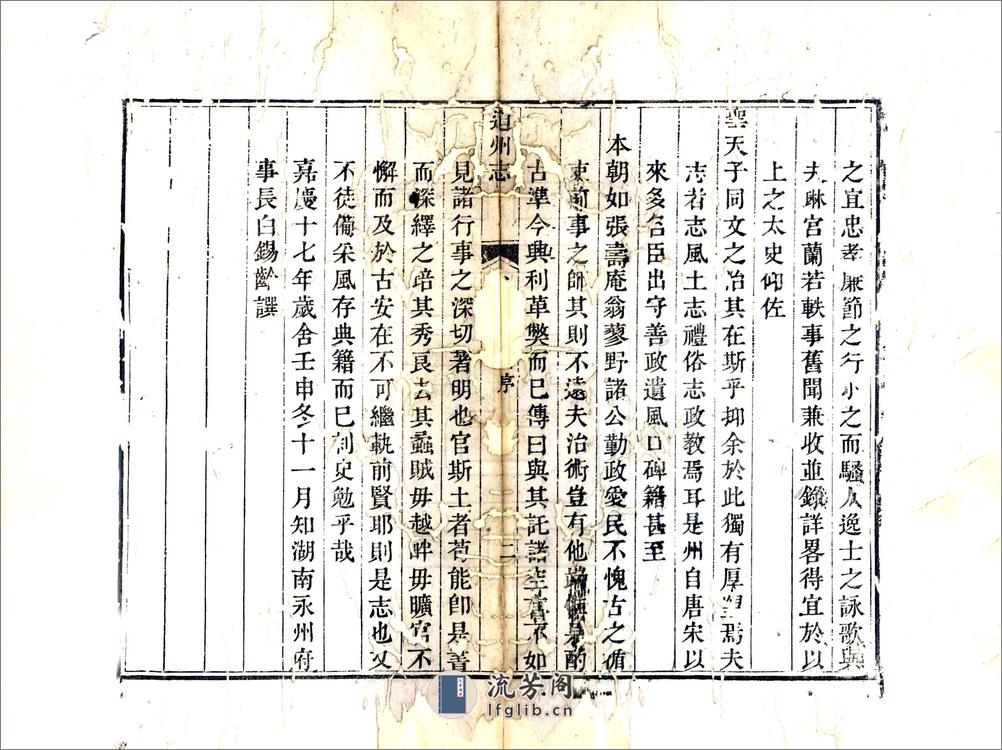 之宜忠孝廉節之行小之而騷人逸士之詠歌與
夫琳宮蘭若軼事舊聞兼收並錄詳畧得宜於以
上之太史仰佐
聖天子同文之治其在斯乎抑余於此獨有厚望焉夫
志者志風土志禮俗志政教焉耳是州自唐宋以
來多名臣出守善政遺風口碑籍甚至
本朝如張壽庵翁蓼野諸公勤政愛民不愧古之循
吏前事之師其則不遠夫治術豈有他端惟是酌
古準今興利革獘而已傳曰與其託諸空言不如
道州志
序
二
見諸行事之深切著明也官斯土者苟能卽是善
而深繹之培其秀良去其蟊賊毋越畔毋曠官不
懈而及於古安在不可繼軌前賢耶則是志也又
不徒備采風存典籍而已刺史勉乎哉
嘉慶十七年歲舍壬申冬十一月知湖南永州府
事長白錫齡譔
流芳阁
lfglib.cn